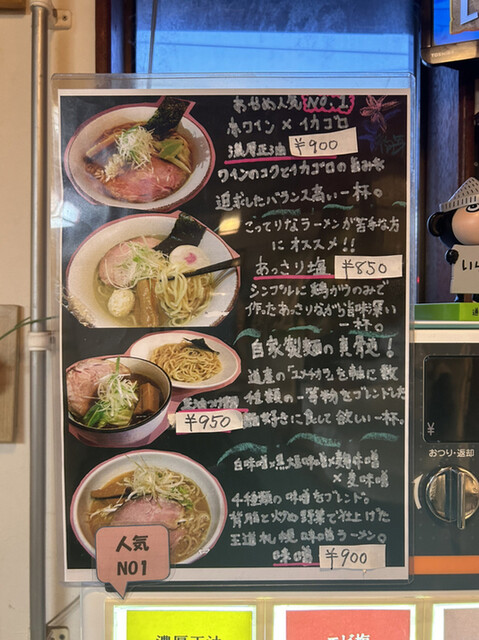 おすすめ人気 NO.1
赤ワイン × イカゴロ
濃厚正油 ¥900
ワインのコクとイカゴロの旨みを
追求したバランス高い一杯。
こってりなラーメンが苦手な方
にオススメ!!
あっさり塩 ¥850
シンプルに鶏ガラのみで
作ったあっさりながら旨味深い
一杯。
自家製麺の真骨頂!
道産の「ゆめちから」を軸に数
種類の小麦粉をブレンドした
¥950
好きに食して欲しい一杯。
白味噌×黒大豆味噌×麹味噌
×麦味噌
4種類の味噌をブレンド。
背脂と炒め野菜で仕上げた
王道札幌味噌ラーメン。
味噌 ¥900
人気
NO1
おつり・返却
¥
濃厚正油